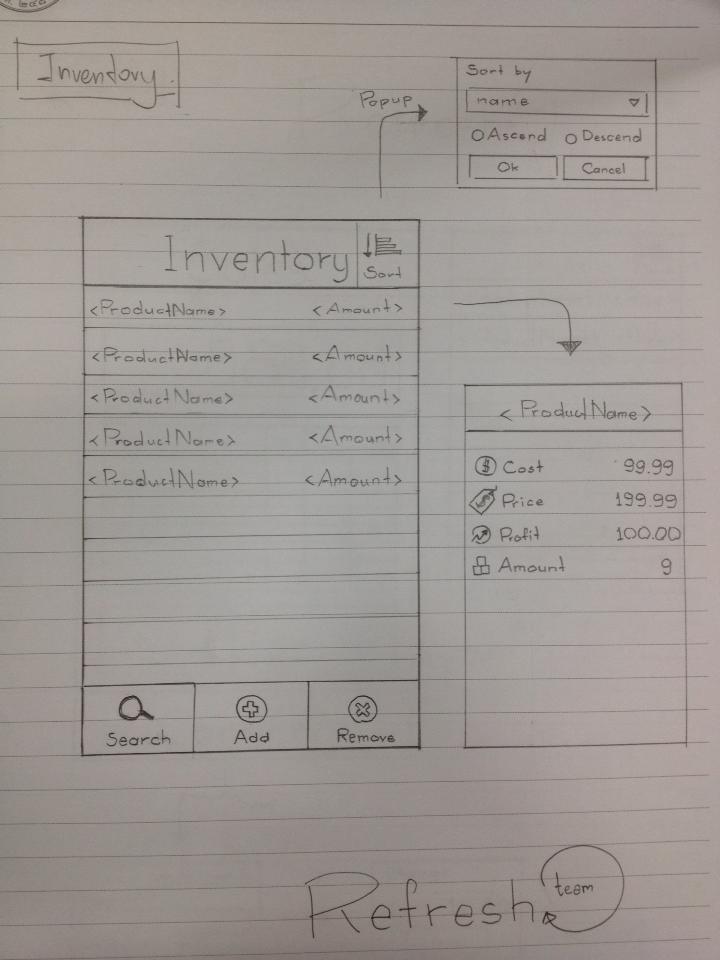 Inventory.
Popup
Sort by
name
Ascend Descend
Ok Cancel
Inventory
Sort
<ProductName> <Amount>
<ProductName> <Amount>
<ProductName> <Amount>
<ProductName> <Amount>
<ProductName> <Amount>
Search Add Remove
<ProductName>
$ Cost 99.99
$ Price 199.99
Profit 100.00
Amount 9
Refresh team